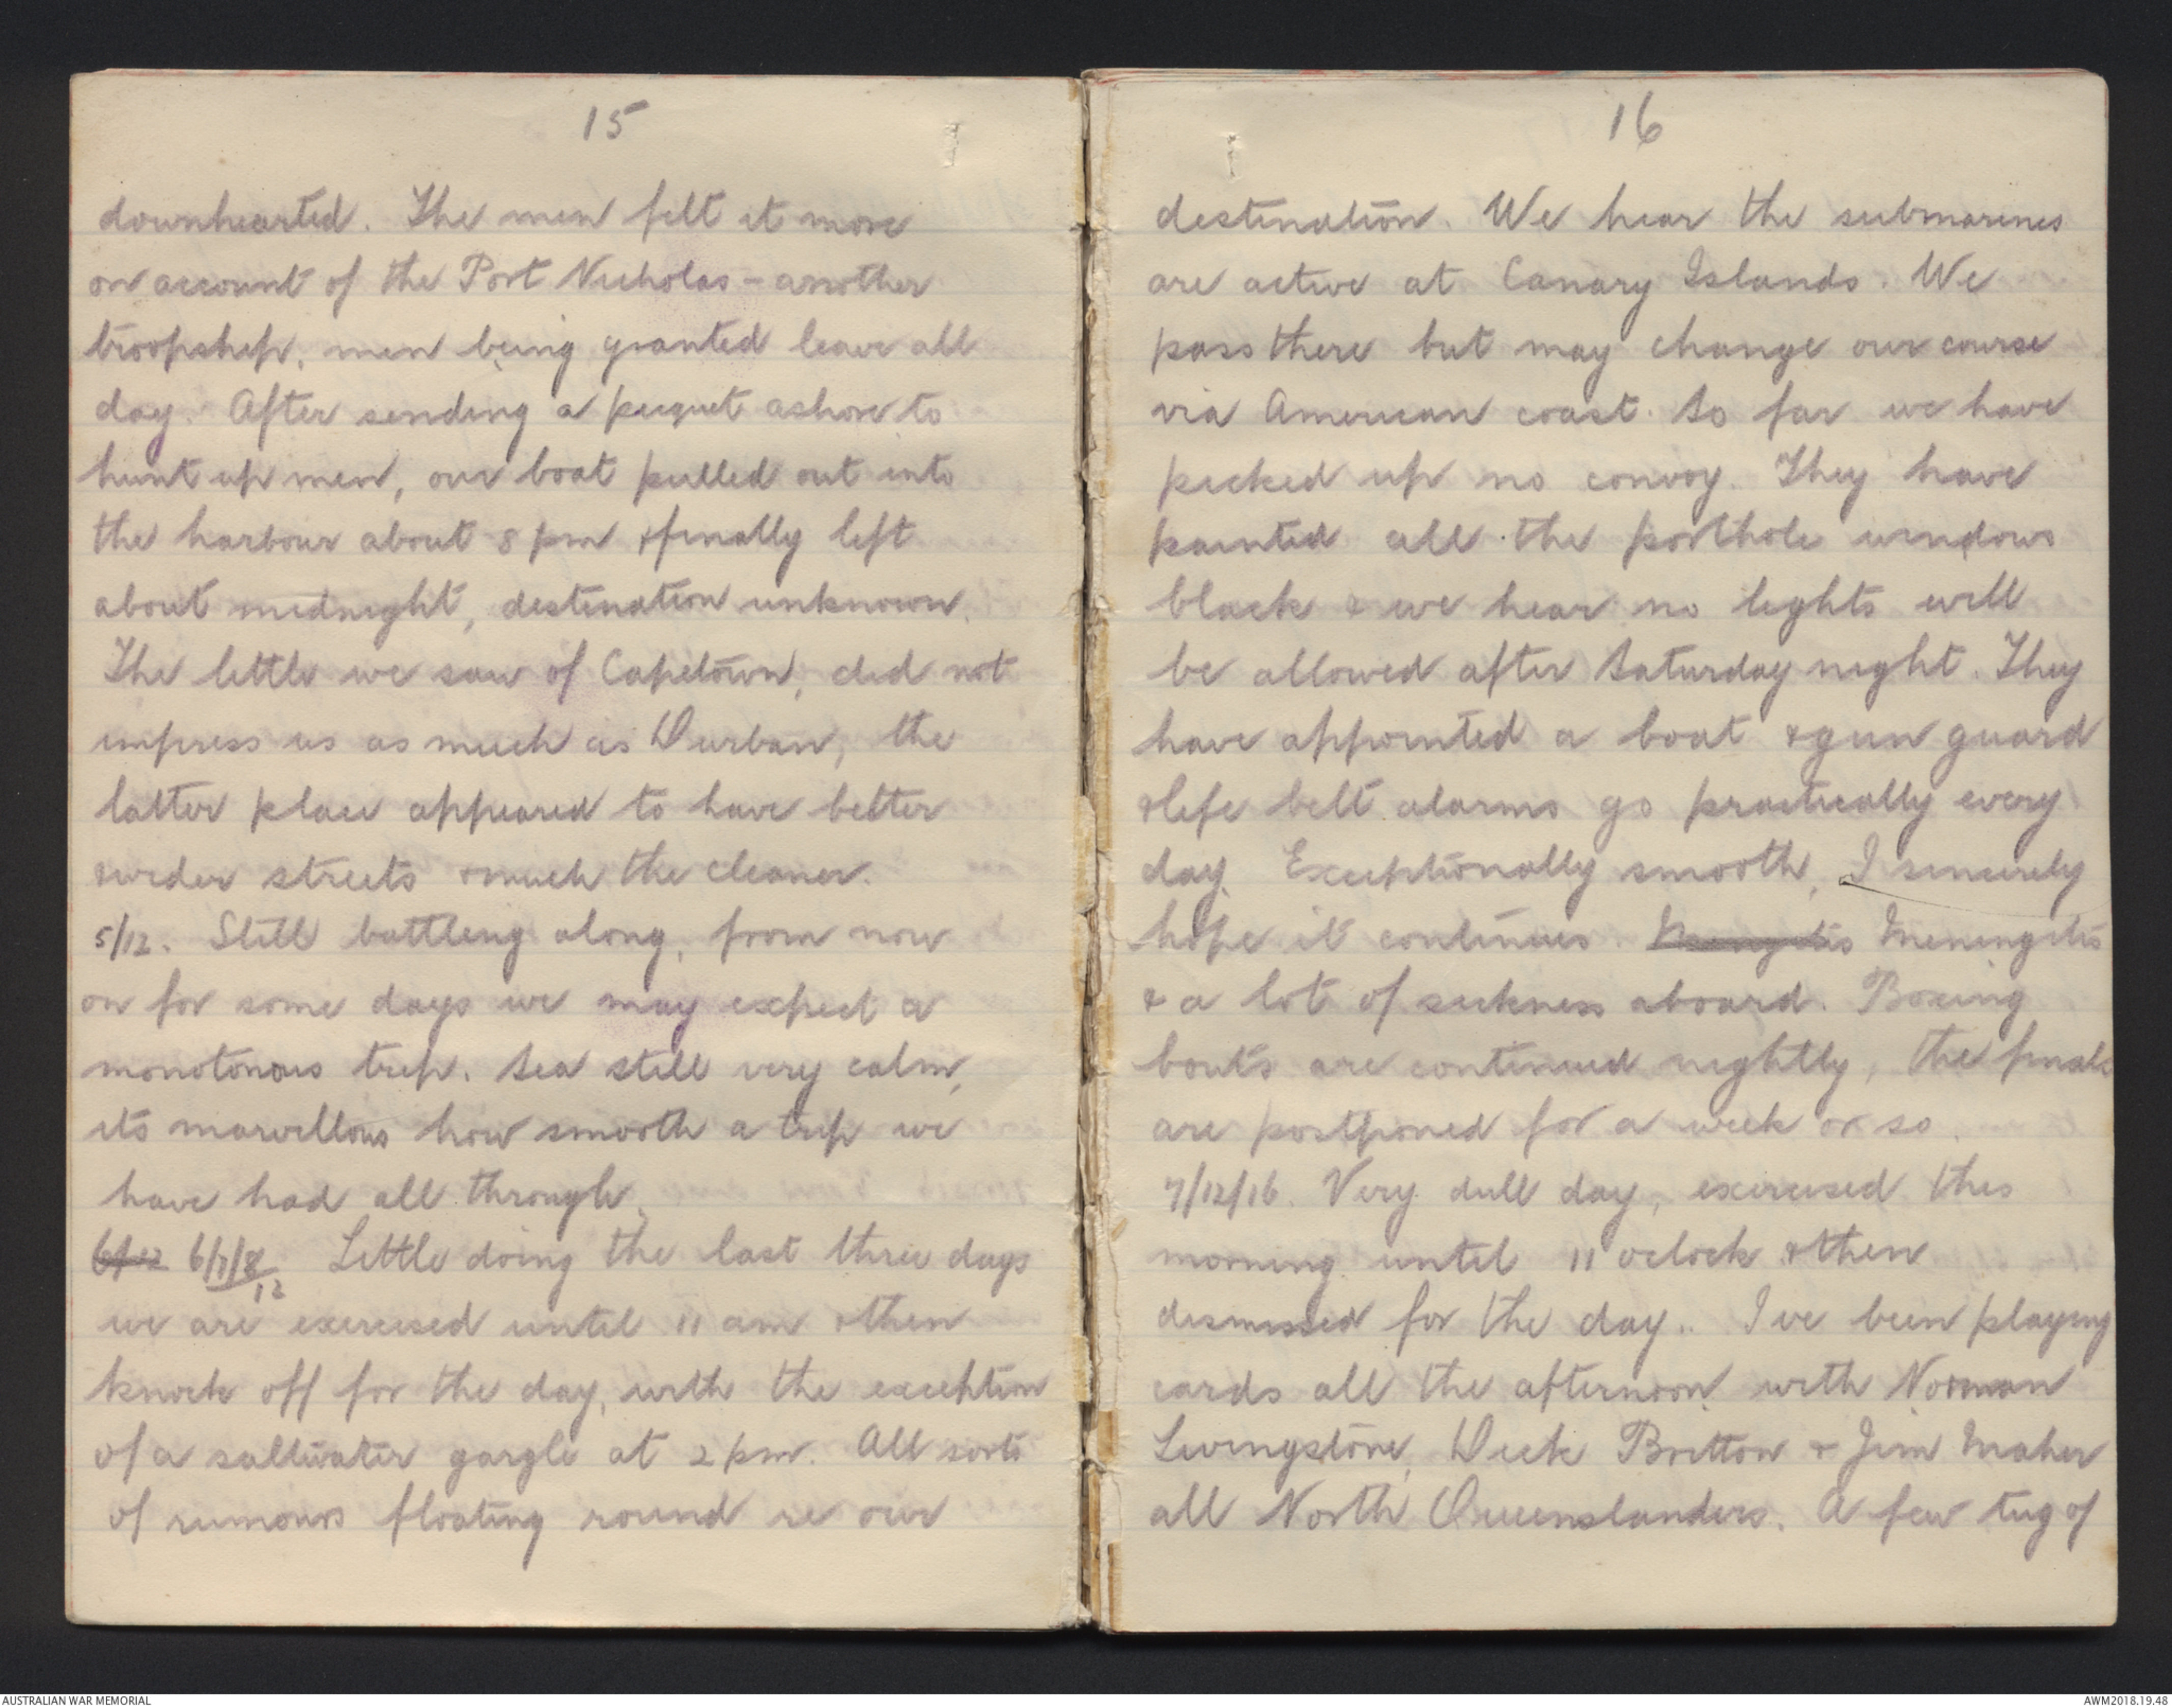 15
downhearted. The men felt it more
on account of the Port Nicholas - another
troopship, men being granted leave all
day. After sending a picquet ashore to
hunt up men, our boat pulled out into
the harbour about 8 pm & finally left
about midnight, destination unknown.
The little we saw of Capetown, did not
impress us as much as Durban, the
latter place appeared to have better
& wider streets & much the cleaner.
5/12. Still battling along, from now
on for some days we may expect a
monotonous trip. Sea still very calm,
its marvellous how smooth a trip we
have had all through.
6/12 6/7/8/12 Little doing the last three days
we are exercised until 11 am & then
knock off for the day, with the exception
of a saltwater gargle at 2 pm. All sorts
of rumours floating round re our
16
destination. We hear the submarines
are active at Canary Islands. We
pass there but may change our course
via American coast. So far we have
picked up no convoy. They have
painted all the porthole windows
black & we hear no lights will
be allowed after Saturday night. They
have appointed a boat & gun guard
& life belt alarms go practically every
day. Exceptionally smooth, I sincerely
hope it continues. Mengitis Meningitis
& a lot of sickness aboard. Boxing
bouts are continued nightly, the finals
are postponed for a week or so.
7/12/16. Very dull day, exercised this
morning until 11 oclock & then
dismissed for the day.. I've been playing
cards all the afternoon with Norman
Livingstone, Dick Britton & Jim Maher
all North Queenslanders. A few tug of
AUSTRALIAN WAR MEMORIAL
AWM2018.19.48